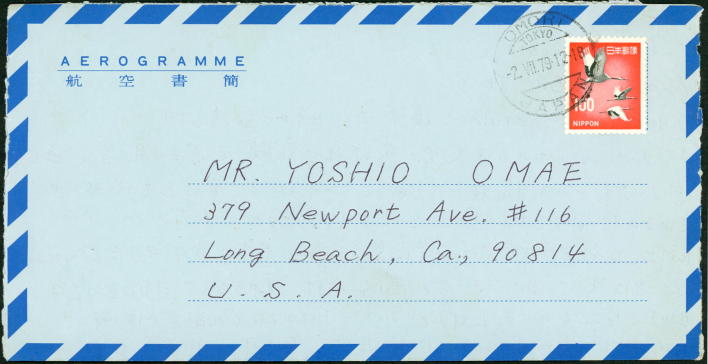 AEROGRAMME
航空書簡
OMORI
TOKYO
-2.VII.79.12-18
JAPAN
日本郵便
100
NIPPON
MR. YOSHIO OMAE
379 Newport Ave. #116
Long Beach, Ca., 90814
U. S. A.